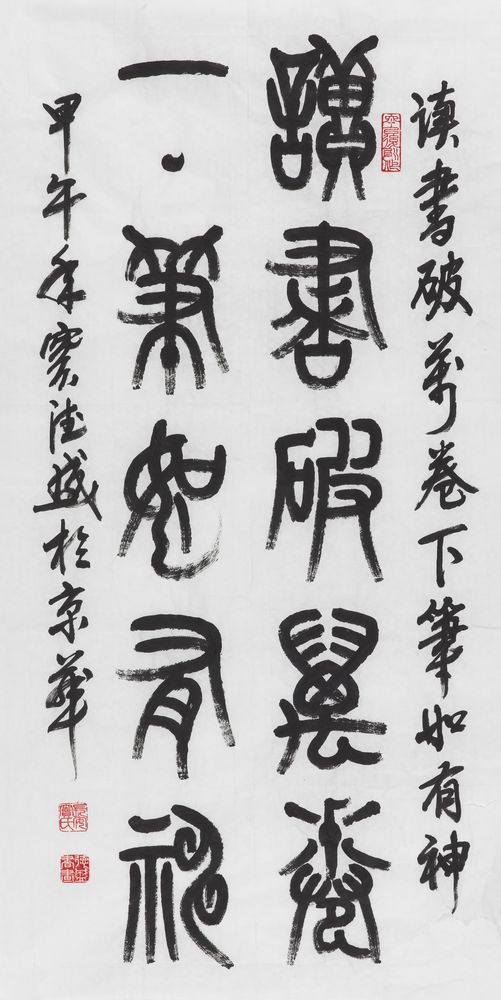 读书破万卷下筆如有神
讀書破萬卷
下筆如有神
甲午年實德盛於京華